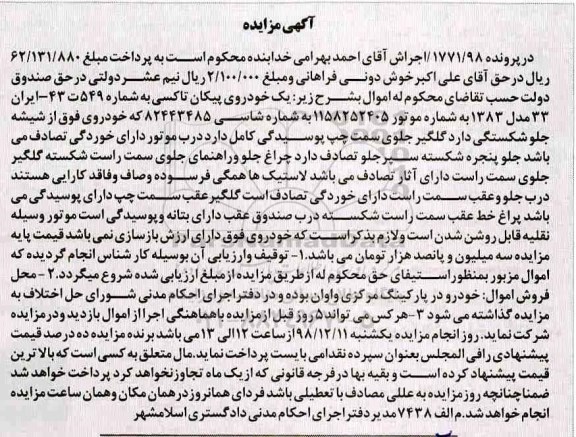 آگهی مزایده
در پرونده ۱۷۷۱/۹۸/اجراش آقای احمد بهرامی خدابنده محکوم است به پرداخت مبلغ ۶۲/۱۳۱/۸۸۰
ریال در حق آقای علی اکبر خوش دونی فراهانی ومبلغ ۲/۱۰۰/۰۰۰ ریال نیم عشر دولتی در حق صندوق
دولت حسب تقاضای محکوم له اموال بشرح زیر: یک خودروی پیکان تاکسی به شماره ۵۴۹ ت ۴۳-ایران
۳۳ مدل ۱۳۸۳ به شماره موتور ۱۱۵۸۲۵۲۴۰۵ به شماره شاسی ۸۲۴۴۳۴۸۵ که خودروی فوق از شیشه
جلو شکستگی دارد گلگیر جلوی سمت چپ پوسیدگی کامل دارد درب موتور دارای خوردگی تصادف می
باشد جلو پنجره شکسته سپر جلو تصادف دارد چراغ جلو وراهنمای جلوی سمت راست شکسته گلگیر
جلوی سمت راست دارای آثار تصادف می باشد لاستیک ها همگی فرسوده وصاف وفاقد کارایی هستند
درب جلو وعقب سمت راست دارای خوردگی تصادف است گلگیر عقب سمت چپ دارای پوسیدگی می
باشد پراغ خط عقب سمت راست شکسته درب صندوق عقب دارای بتانه و پوسیدگی است موتور وسیله
نقلیه قابل روشن شدن است ولازم بذکر است که خودروی فوق دارای ارزش بازسازی نمی باشد قیمت پایه
مزایده سه میلیون و پانصد هزار تومان می باشد.۱- توقیف وارزیابی آن بوسیله کارشناس انجام گردیده که
اموال مزبور بمنظور استیفای حق محکوم له از طریق مزایده از مبلغ ارزیابی شده شروع میگردد.۲- محل
فروش اموال: خودرو در پارکینگ مرکزی واوان بوده و در دفتر اجرای احکام مدنی شورای حل اختلاف به
مزایده گذاشته می شود ۳-هر کس می تواند ۵ روز قبل از مزایده با هماهنگی اجرا از اموال بازدید و در مزایده
شرکت نماید. روز انجام مزایده یکشنبه ۹۸/۱۲/۱۱ از ساعت ۱۲ الی ۱۳ می باشد برنده مزایده ده درصد قیمت
پیشنهادی را فی المجلس بعنوان سپرده نقدا می بایست پرداخت نماید. مال متعلق به کسی است که بالاترین
قیمت پیشنهاد کرده است و بقیه بها در فرجه قانونی که از یک ماه تجاوز نخواهد کرد پرداخت خواهد شد
ضمنا چنانچه روز مزایده به عللی مصادف با تعطیلی باشد فردای همانروز در همان مکان وهمان ساعت مزایده
انجام خواهد شد.م الف ۷۴۳۸ مدیر دفتر اجرای احکام مدنی دادگستری اسلامشهر